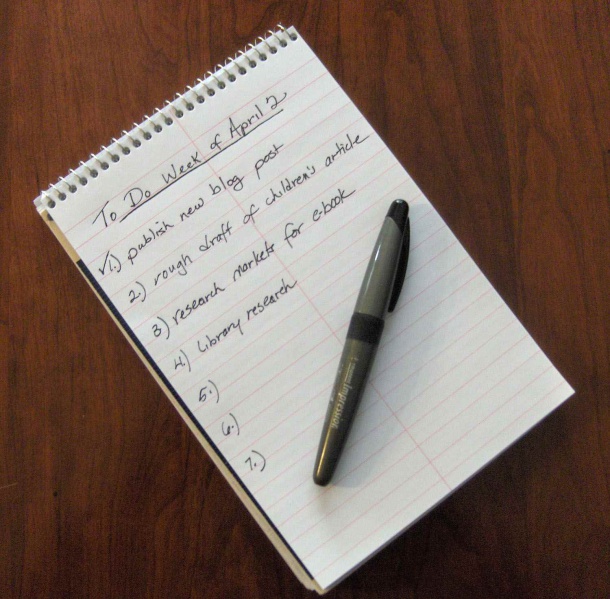 To Do Week of April 2
√1.) publish new blog post
2.) rough draft of children's article
3.) research markets for e-book
4.) Library research
5.)
6.)
7.)
Impresse